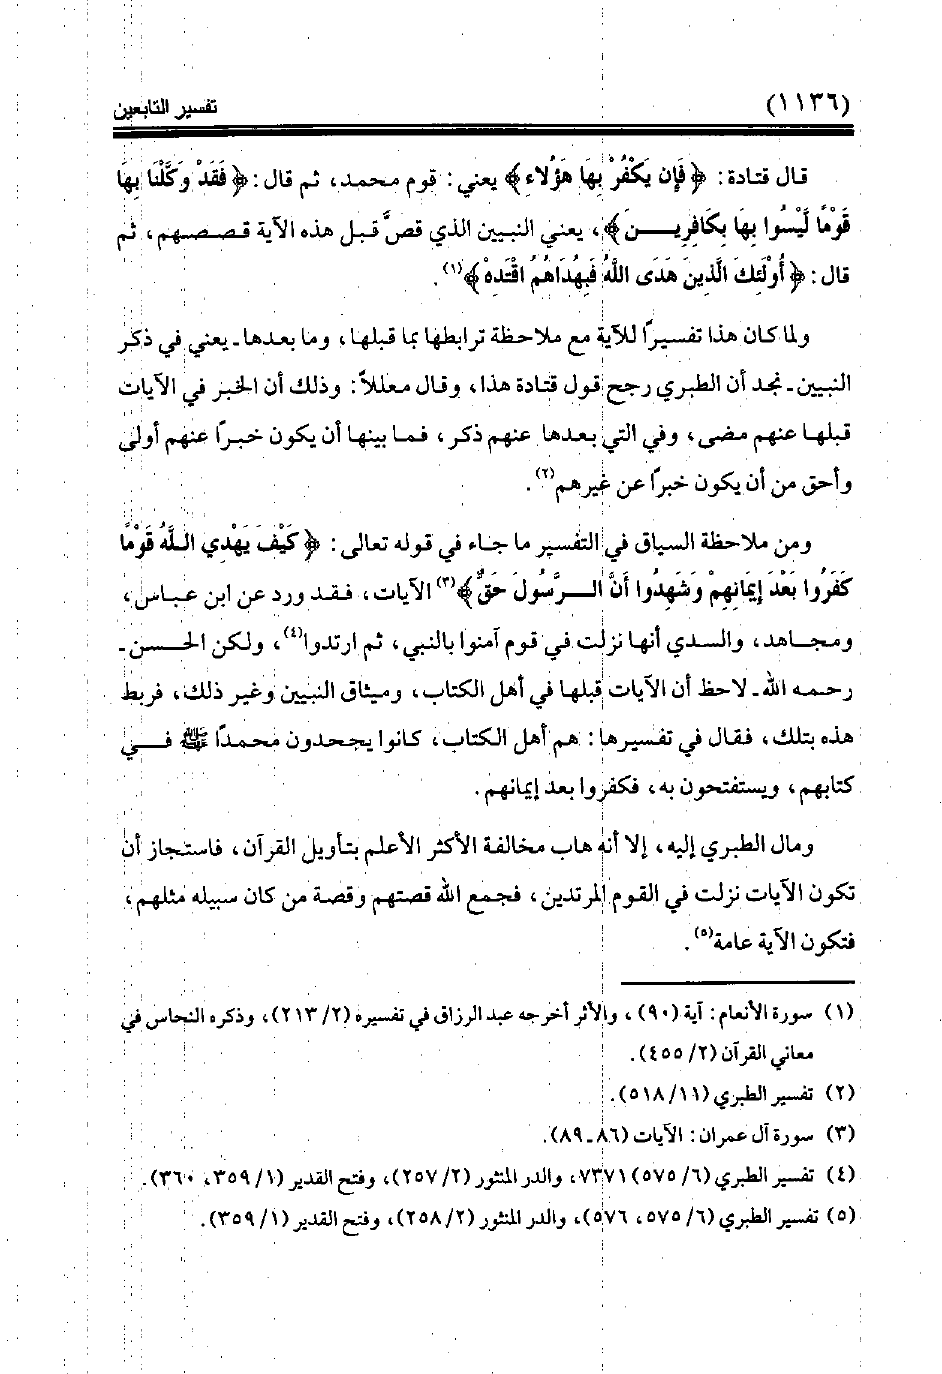 (١١٣٦) تفسير التابعين
قال قتادة: ﴿فَإِن يَكْفُرْ بِهَا هَؤُلاءِ﴾ يعني: قوم محمد، ثم قال: ﴿فَقَدْ وَكَّلْنَا بِهَا
قَوْمًا لَيْسُوا بِهَا بِكَافِرِيــنَ﴾، يعني النبيين الذي قصَّ قبل هذه الآية قصصهم، ثم
قال: ﴿أُوْلَئِكَ الَّذِينَ هَدَى اللَّهُ فَبِهُدَاهُمُ اقْتَدِهْ﴾(١).
ولما كان هذا تفسيرًا للآية مع ملاحظة ترابطها بما قبلها، وما بعدها - يعني في ذكر
النبيين - نجد أن الطبري رجح قول قتادة هذا، وقال معللاً: وذلك أن الخبر في الآيات
قبلها عنهم مضى، وفي التي بعدها عنهم ذكر، فما بينها أن يكون خبرًا عنهم أولى
وأحق من أن يكون خبرًا عن غيرهم(٢).
ومن ملاحظة السياق في التفسير ما جاء في قوله تعالى: ﴿كَيْفَ يَهْدِي اللَّهُ قَوْمًا
كَفَرُوا بَعْدَ إِيمَانِهِمْ وَشَهِدُوا أَنَّ الــرَّسُولَ حَقٌّ﴾(٣) الآيات، فقد ورد عن ابن عباس،
ومجاهد، والسدي أنها نزلت في قوم آمنوا بالنبي، ثم ارتدوا(٤)، ولكن الحسن -
رحمه الله - لاحظ أن الآيات قبلها في أهل الكتاب، وميثاق النبيين وغير ذلك، فربط
هذه بتلك، فقال في تفسيرها: هم أهل الكتاب، كانوا يجحدون محمدًا ﷺ فــي
كتابهم، ويستفتحون به، فكفروا بعد إيمانهم.
ومال الطبري إليه، إلا أنه هاب مخالفة الأكثر الأعلم بتأويل القرآن، فاستجاز أن
تكون الآيات نزلت في القوم المرتدين، فجمع الله قصتهم وقصة من كان سبيله مثلهم،
فتكون الآية عامة(٥).
(١) سورة الأنعام: آية (٩٠)، والأثر أخرجه عبد الرزاق في تفسيره (٢/ ٢١٣)، وذكره النحاس في
معاني القرآن (٢/ ٤٥٥).
(٢) تفسير الطبري (١١/ ٥١٨).
(٣) سورة آل عمران: الآيات (٨٦ - ٨٩).
(٤) تفسير الطبري (٦/ ٥٧٥) ٧٣٧١، والدر المنثور (٢/ ٢٥٧)، وفتح القدير (١/ ٣٥٩، ٣٦٠).
(٥) تفسير الطبري (٦/ ٥٧٥، ٥٧٦)، والدر المنثور (٢/ ٢٥٨)، وفتح القدير (١/ ٣٥٩).